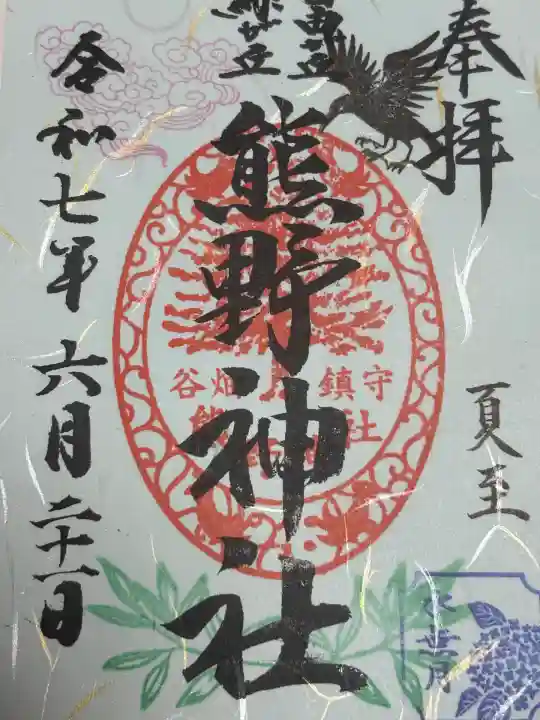 奉拝
夏至
熊野神社
谷畑 鎮守
令和七年六月二十一日